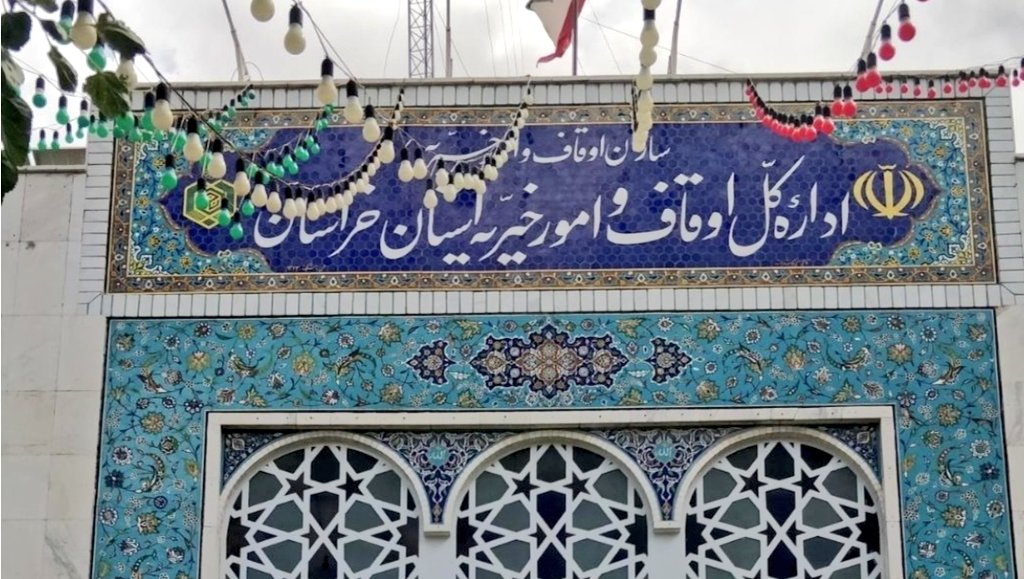 سازمان اوقاف و امور خیریه
اداره کل اوقاف و امور خیریه استان خراسان
الله
الله